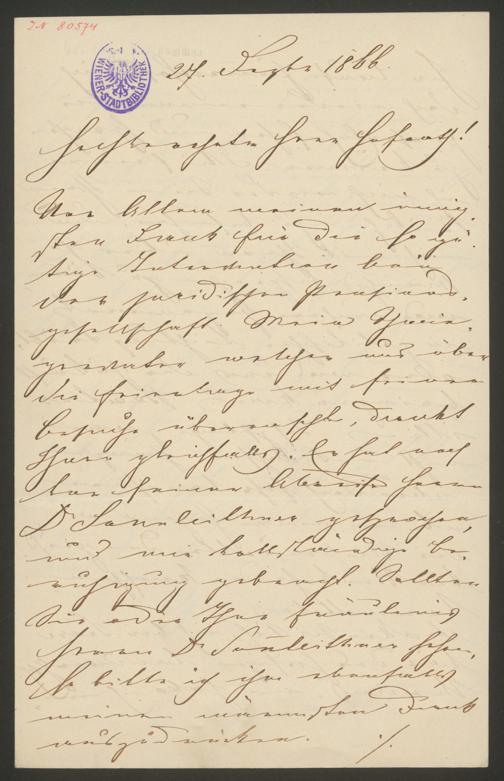 I.N 80574
WIENER-STADTBIBLIOTHEK
27. Dezbr 1866.
Hochverehrter Herr Hofrath!
Vor Allem meinen innig-
sten Dank für die so gü-
tige Intervention bei
der juridischen Pensions-
gesellschaft. Mein Schwie-
gervater welcher uns über
die Feiertage mit seinem
Besuche überraschte, dankt
Ihnen gleichfalls. Er hat noch
vor seiner Abreise Herrn
Dr Sonnleithner gesprochen,
und mir vollständige Be-
ruhigung gebracht. Sollten
Sie oder Ihre Fräuleins
Herrn Dr Sonnleithner sehen,
so bitte ich ihm ebenfalls
meinen wärmsten Dank
auszudrücken. ./.